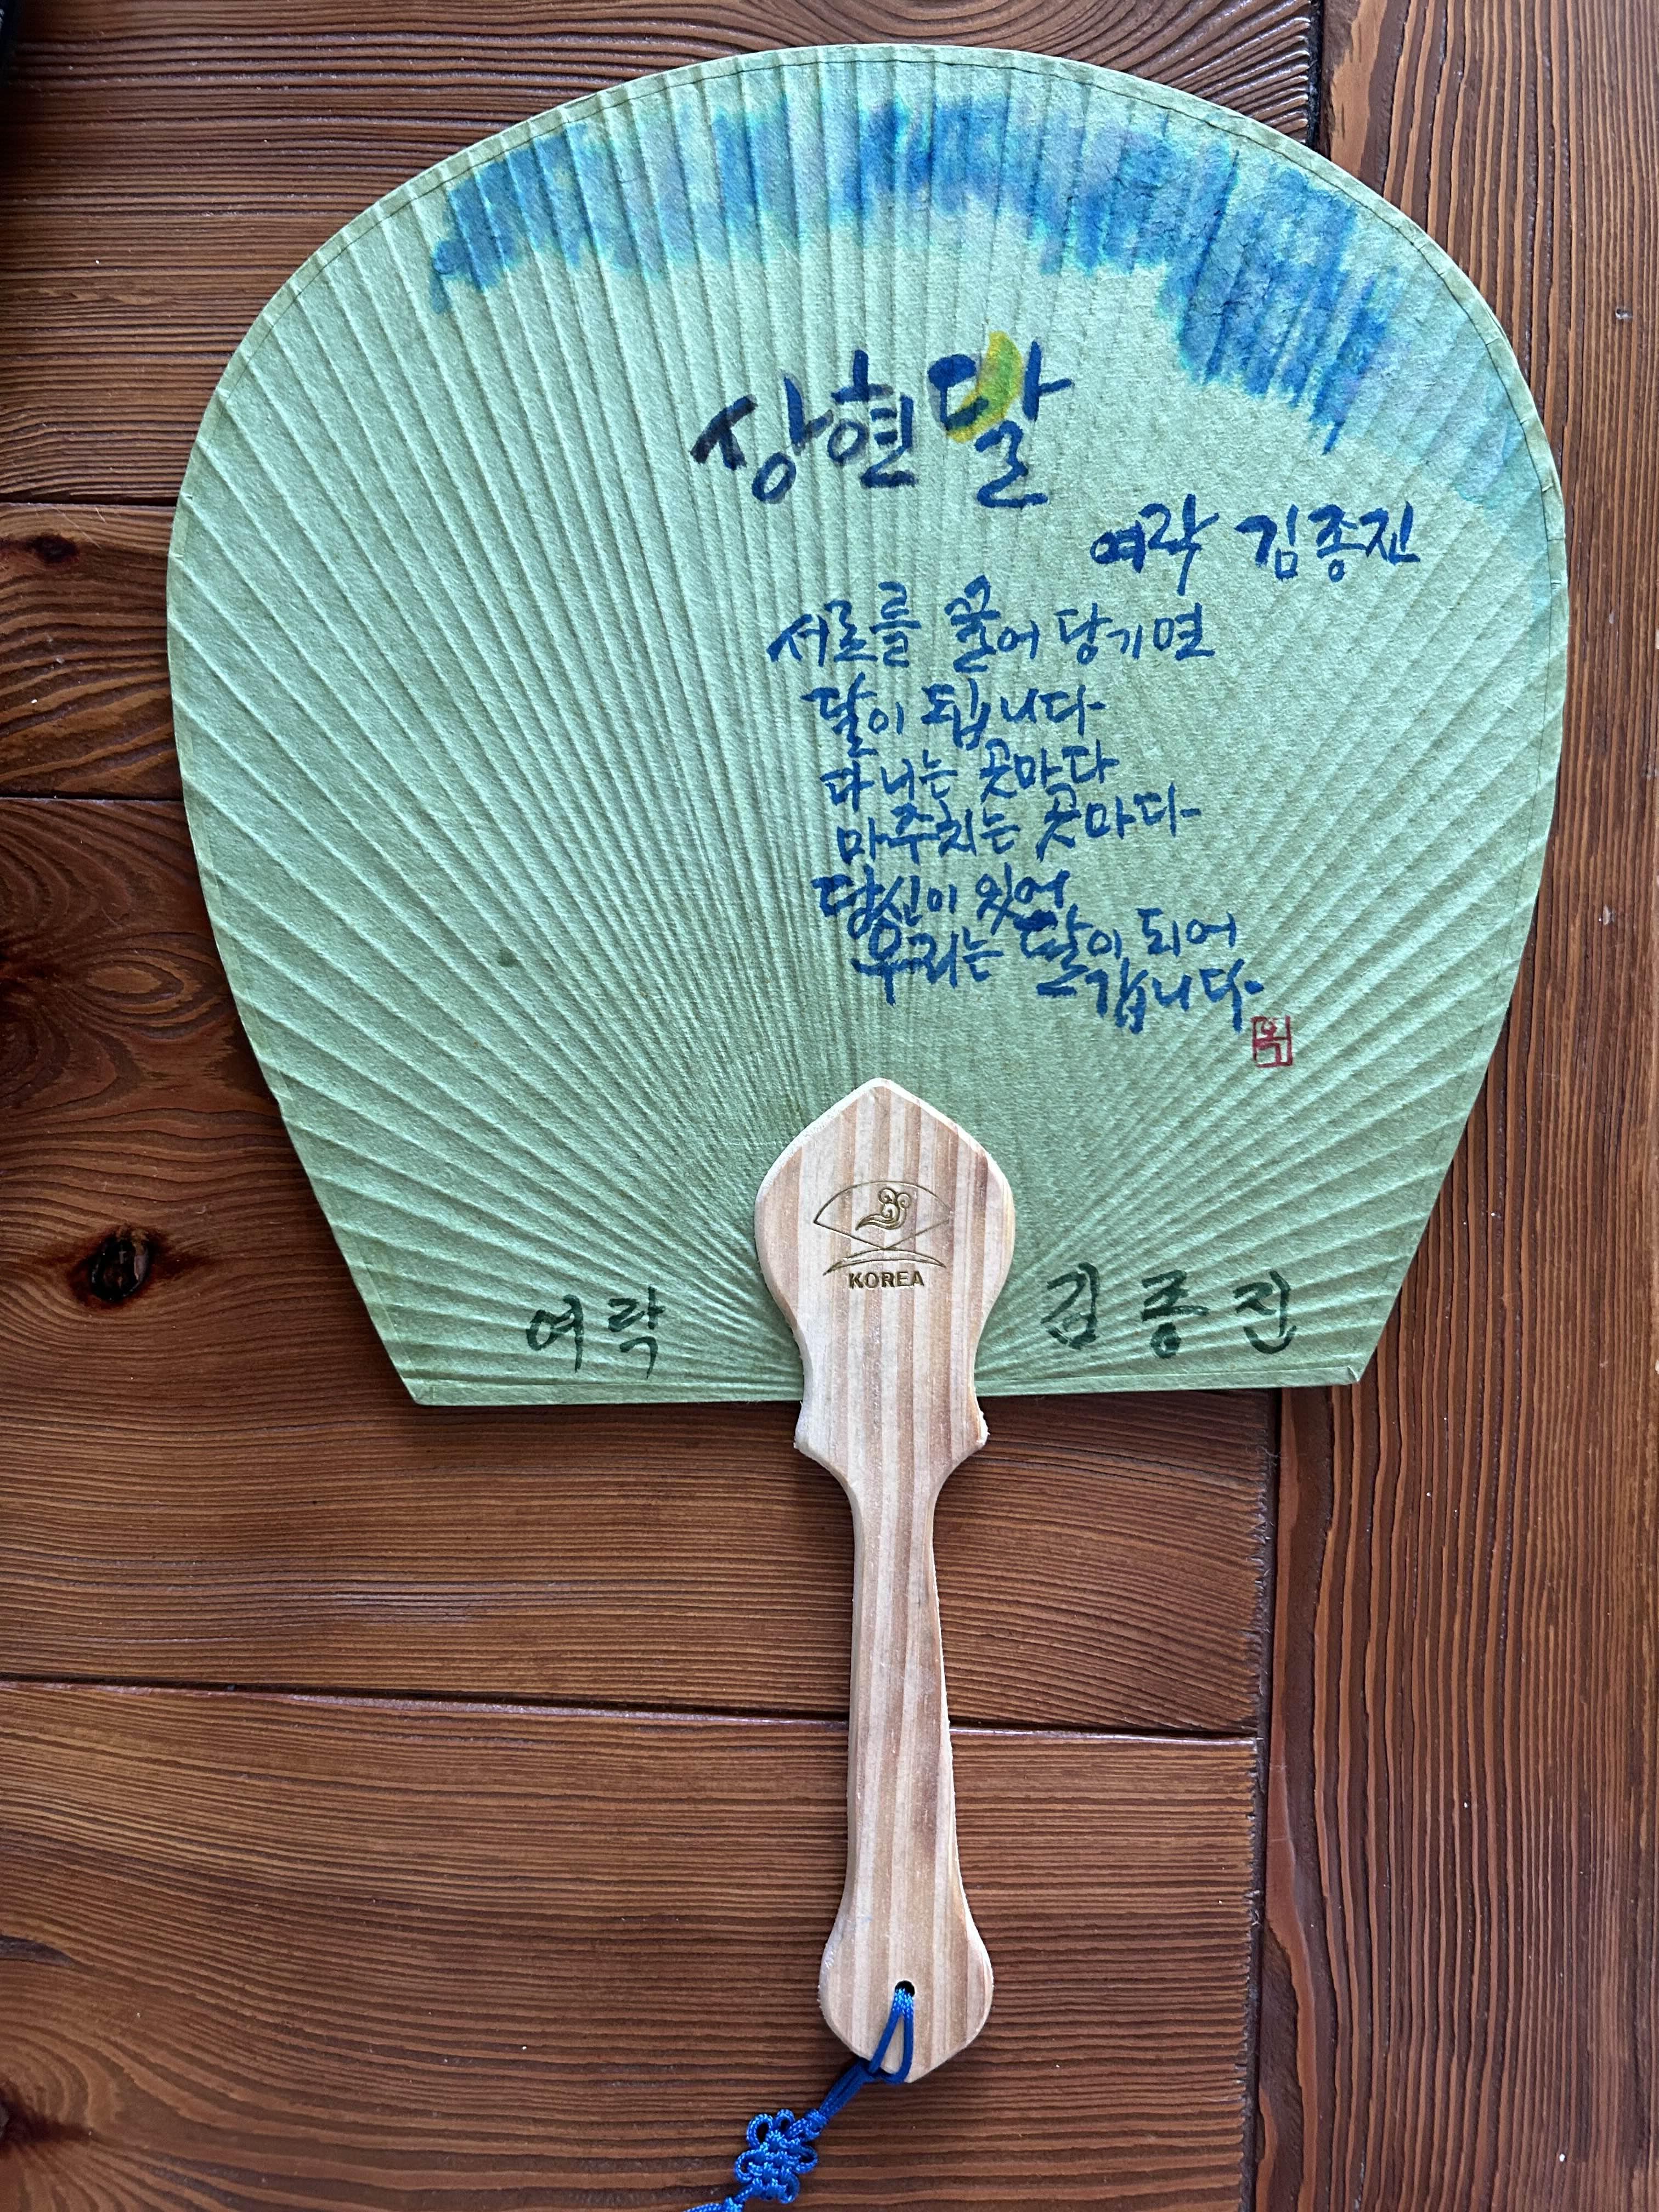 상현달
여락 김종진
서로를 끌어 당기면
달이 됩니다
다니는 곳마다
마주치는 곳마다
당신이 있어
우리는 달이 되어
갑니다
KOREA
여락 김종진